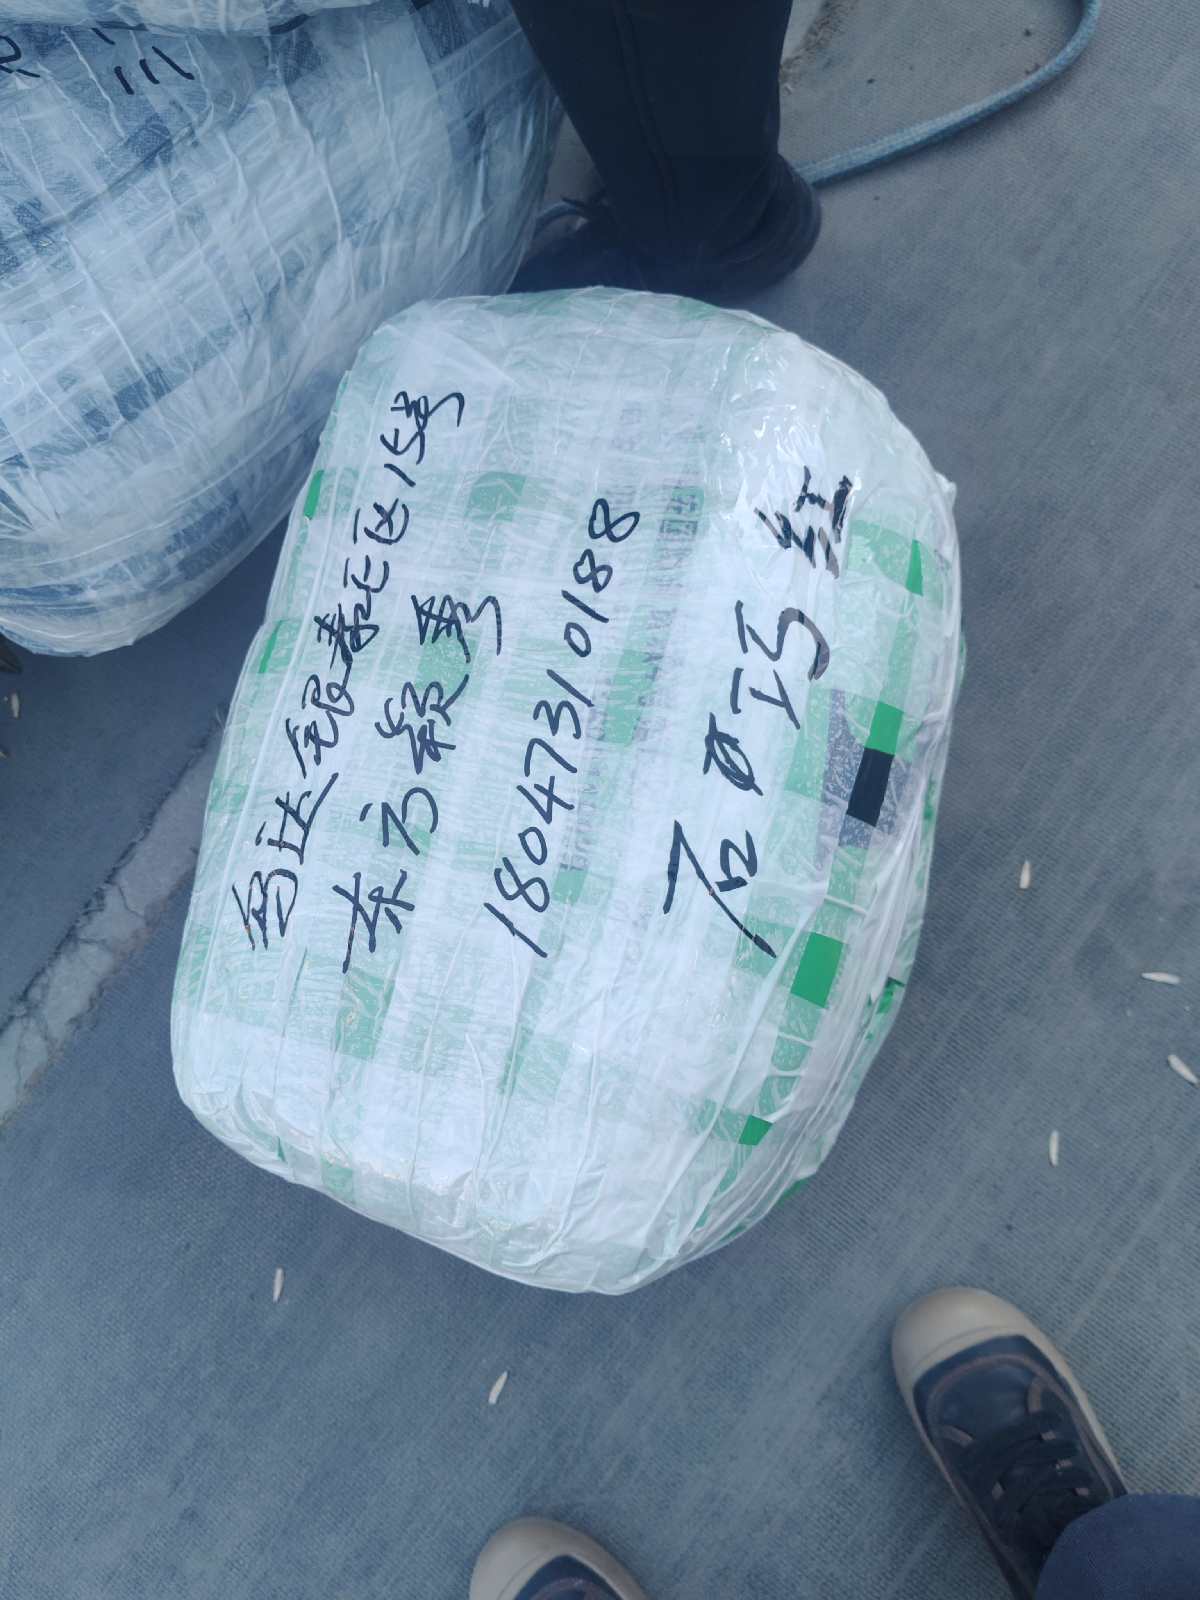 乌达银泰区15号
东方秀
18047310188
石巧红